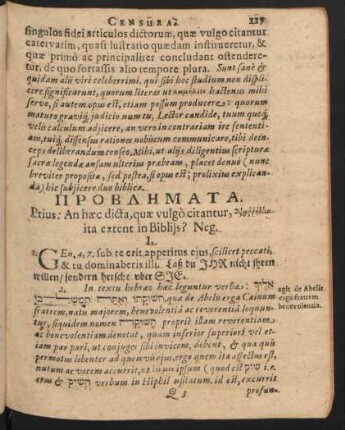 CENSURA.
singulos fidei articulos dictorum, quæ vulgo citantur
catervatim, quasi lustratio quædam institueretur, &
quæ primò ac principaliter concludant ostendere-
tur, de quo fortassis alio tempore plura. Sunt sanè &
quidam alii viri celeberrimi, qui sibi hoc studium non displi-
cere significarunt, quorum literas ut hactenus mihi
servo, si autem opus est, etiam possum producere: quorum
maturo gravíq; judicio num tu, Lector candide, tuum quoq;
velis calculum adjicere, an verò in contrariam ire sententi-
am, tuíq; dissensus rationes nobiscum communicare, tibi dein-
ceps deliberandum censeo. Mihi, ut aliis diligentiùs scripturæ
sacræ legendæ ansam ulterius præbeam, placet denuò (nunc
breviter proposita, sed postea, si opus est; prolixius explican-
da) hîc subjicere duo biblica.
ΠΡΟΒΛΗΜΑΤΑ.
Prius: An hæc dicta, quæ vulgò citantur,
ita extent in Biblijs? Neg.
1.
1. GEn. 4, 7. sub te erit appetitus ejus, scilicet peccati,
& tu dominaberis illi. Laß du JHR nicht jhren
willen / sondern hersche uber SIE.
In textu hebræo hæc leguntur verba: אליך
תשוקתו ואתה תמשל־בו quæ de Abelis erga Cainum
fratrem, natu majorem, benevolentiâ ac reverentiâ loquun-
tur, siquidem nomen תשוקה propriè illam reverentiam,
ac benevolentiam denotat, quam inferior superiori vel et-
iam par pari, ut conjuges sibi invicem, debent, & quâ quis
permotus libenter ad quem vis ejus, ergo quem ita affectus est,
nutum ac voluntatem, ut ipsum (quod est שוק i.e.
crus & השיק verbum in Hiphil usitatum, id est, excurrit
agit. de Abelis
erga fratrem
benevolentia.
Q 3
profun-